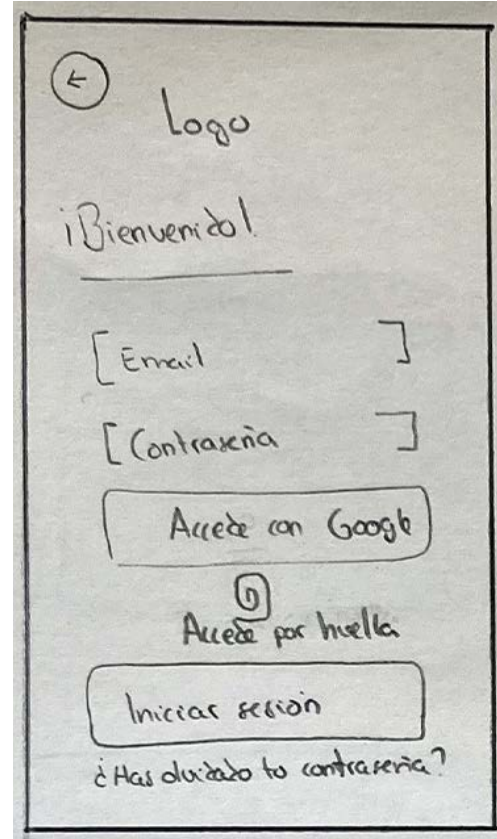 ←
Logo
¡Bienvenido!
[Email ]
[Contraseña ]
Accede con Google
Accede por huella
Iniciar sesión
¿Has olvidado tu contraseña?